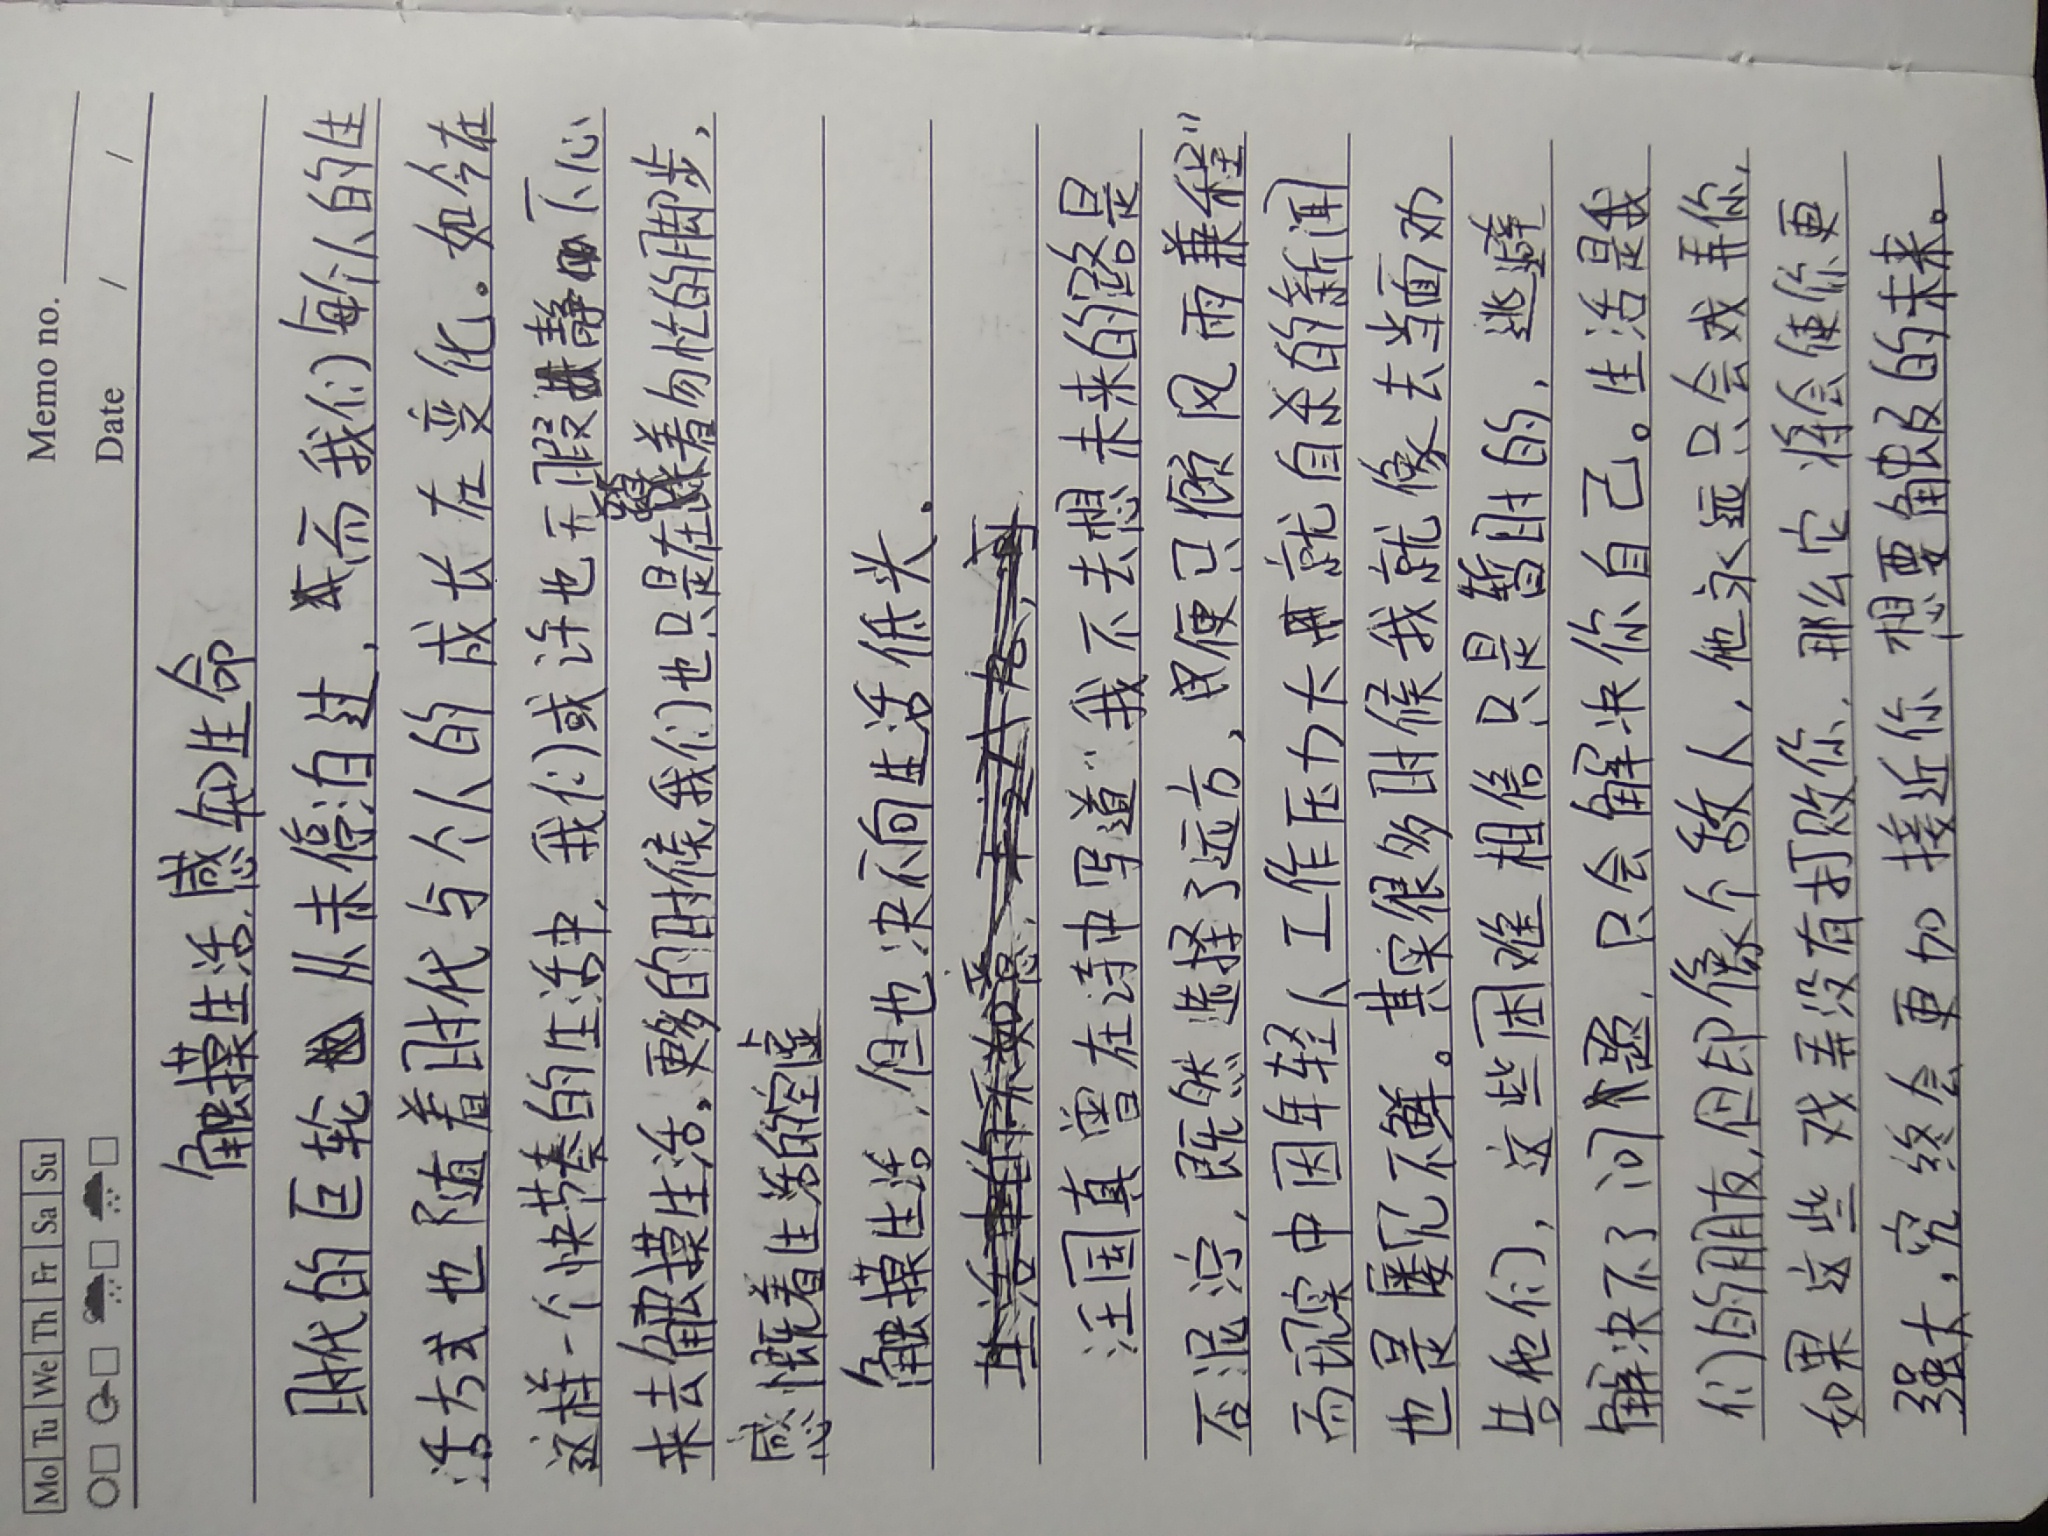 Mo Tu We Th Fr Sa Su
Memo no.
Date / /
触摸生活,感知生命
时代的巨轮从未停泊过,而我们每个人的生
活方式也随着时代与个人的成长在变化。如今在
这样一个快节奏的生活中,我们或许也无暇静下心
来去触摸生活。更多的时候,我们也只是在踩着匆忙的脚步,
感慨着生活的空虚
触摸生活,但也决不向生活低头。
汪国真曾在诗中写道“我不去想未来的路是
否泥泞,既然选择了远方,因便只顾风雨兼程”
而现实中因年轻人工作压力大就自杀的新闻
也是屡见不鲜。其实很多时候我就像去当面劝
告他们,这些困难相信只是暂时的,逃避
解决不了问题,只会解决你自己。生活是我
们的朋友,但却像个敌人,他永远只会戏弄你,
如果这些戏弄没有打败你,那么它将会使你更
强大,究终会更加接近你想要触及的未来。